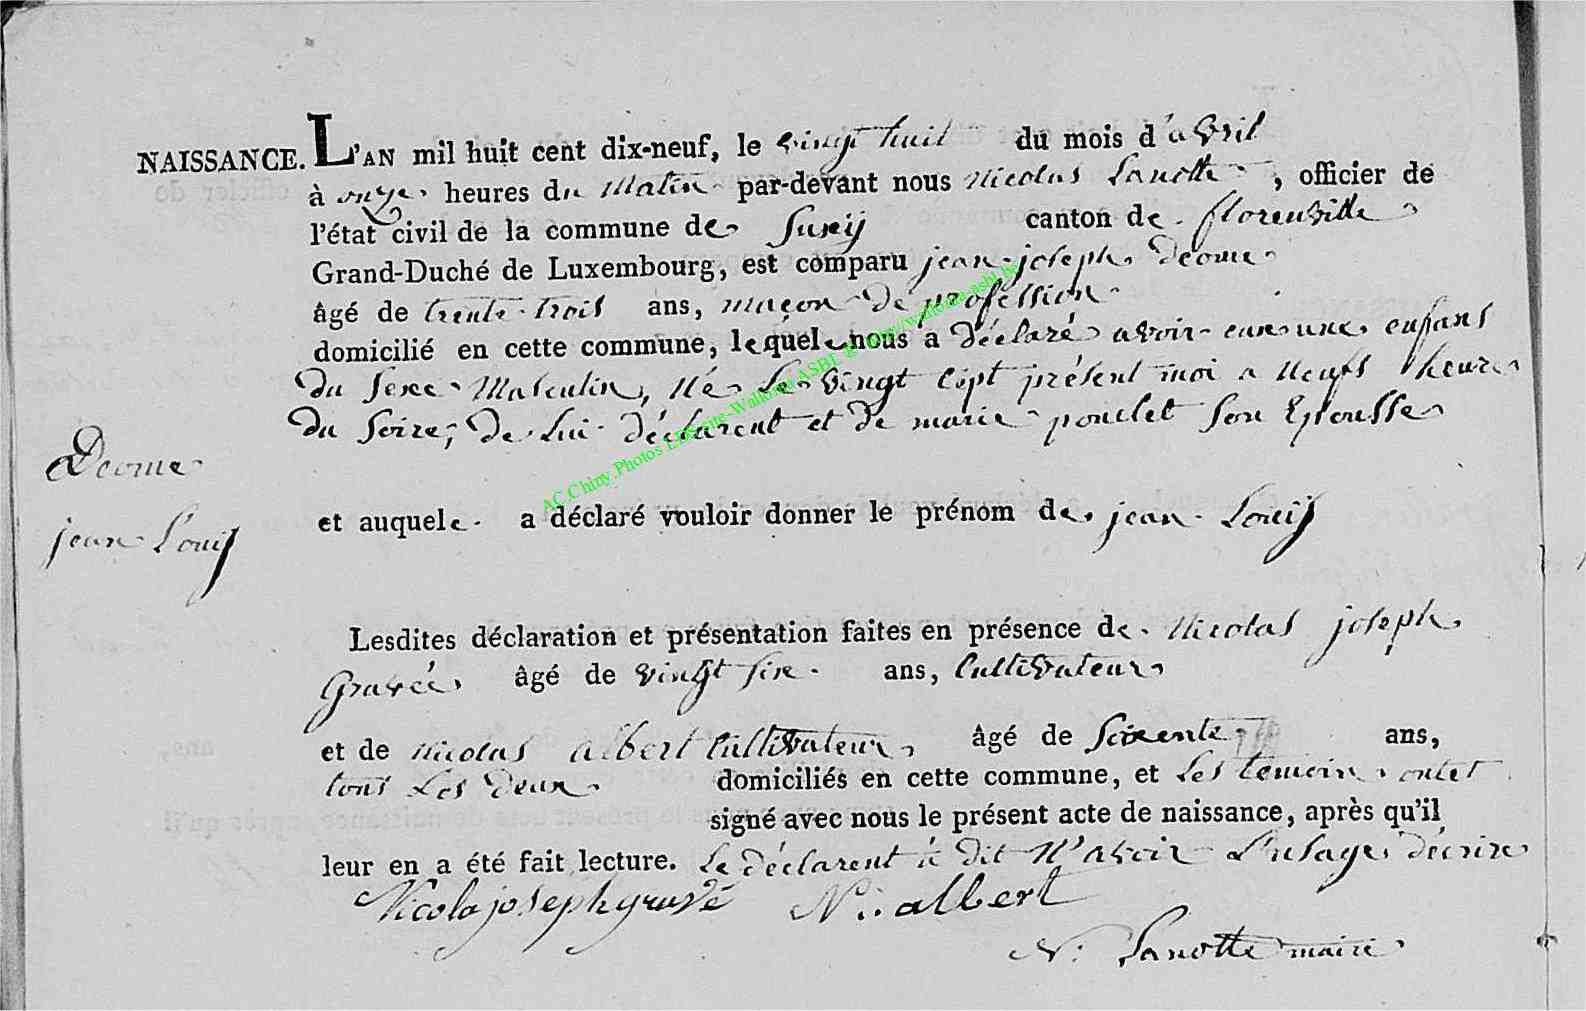 NAISSANCE. L'AN mil huit cent dix-neuf, le vingt huit du mois d'avril
à onze heures du Matin par-devant nous Nicolas Lanotte, officier de
l'état civil de la commune de Suxÿ canton de florenville
Grand-Duché de Luxembourg, est comparu jean joseph Deome
âgé de trente trois ans, maçon de profession
domicilié en cette commune, lequele nous a déclaré avoir eue une enfans
du Sexe Masculin, Né Le vingt Cept présent moi a Neufs heure
du Soire, De Lui déclarent et de marie ponclet Son Epousse
Deome
jean Louis
et auquele a déclaré vouloir donner le prénom de jean Louis
Lesdites déclaration et présentation faites en présence de Nicolas joseph
Gravée âgé de vingt six ans, Cultivateur
et de Nicolas albert Cultivateur, âgé de Soixente ans,
tous Les deux domiciliés en cette commune, et Les temoin ontet
signé avec nous le présent acte de naissance, après qu'il
leur en a été fait lecture. Le déclarent à dit N'avoir L'usage décrire
Nicola joseph gravé N.. albert
N: Lanotte maire
AC.Chiny.Photos LDS site-Wallonia ASBL